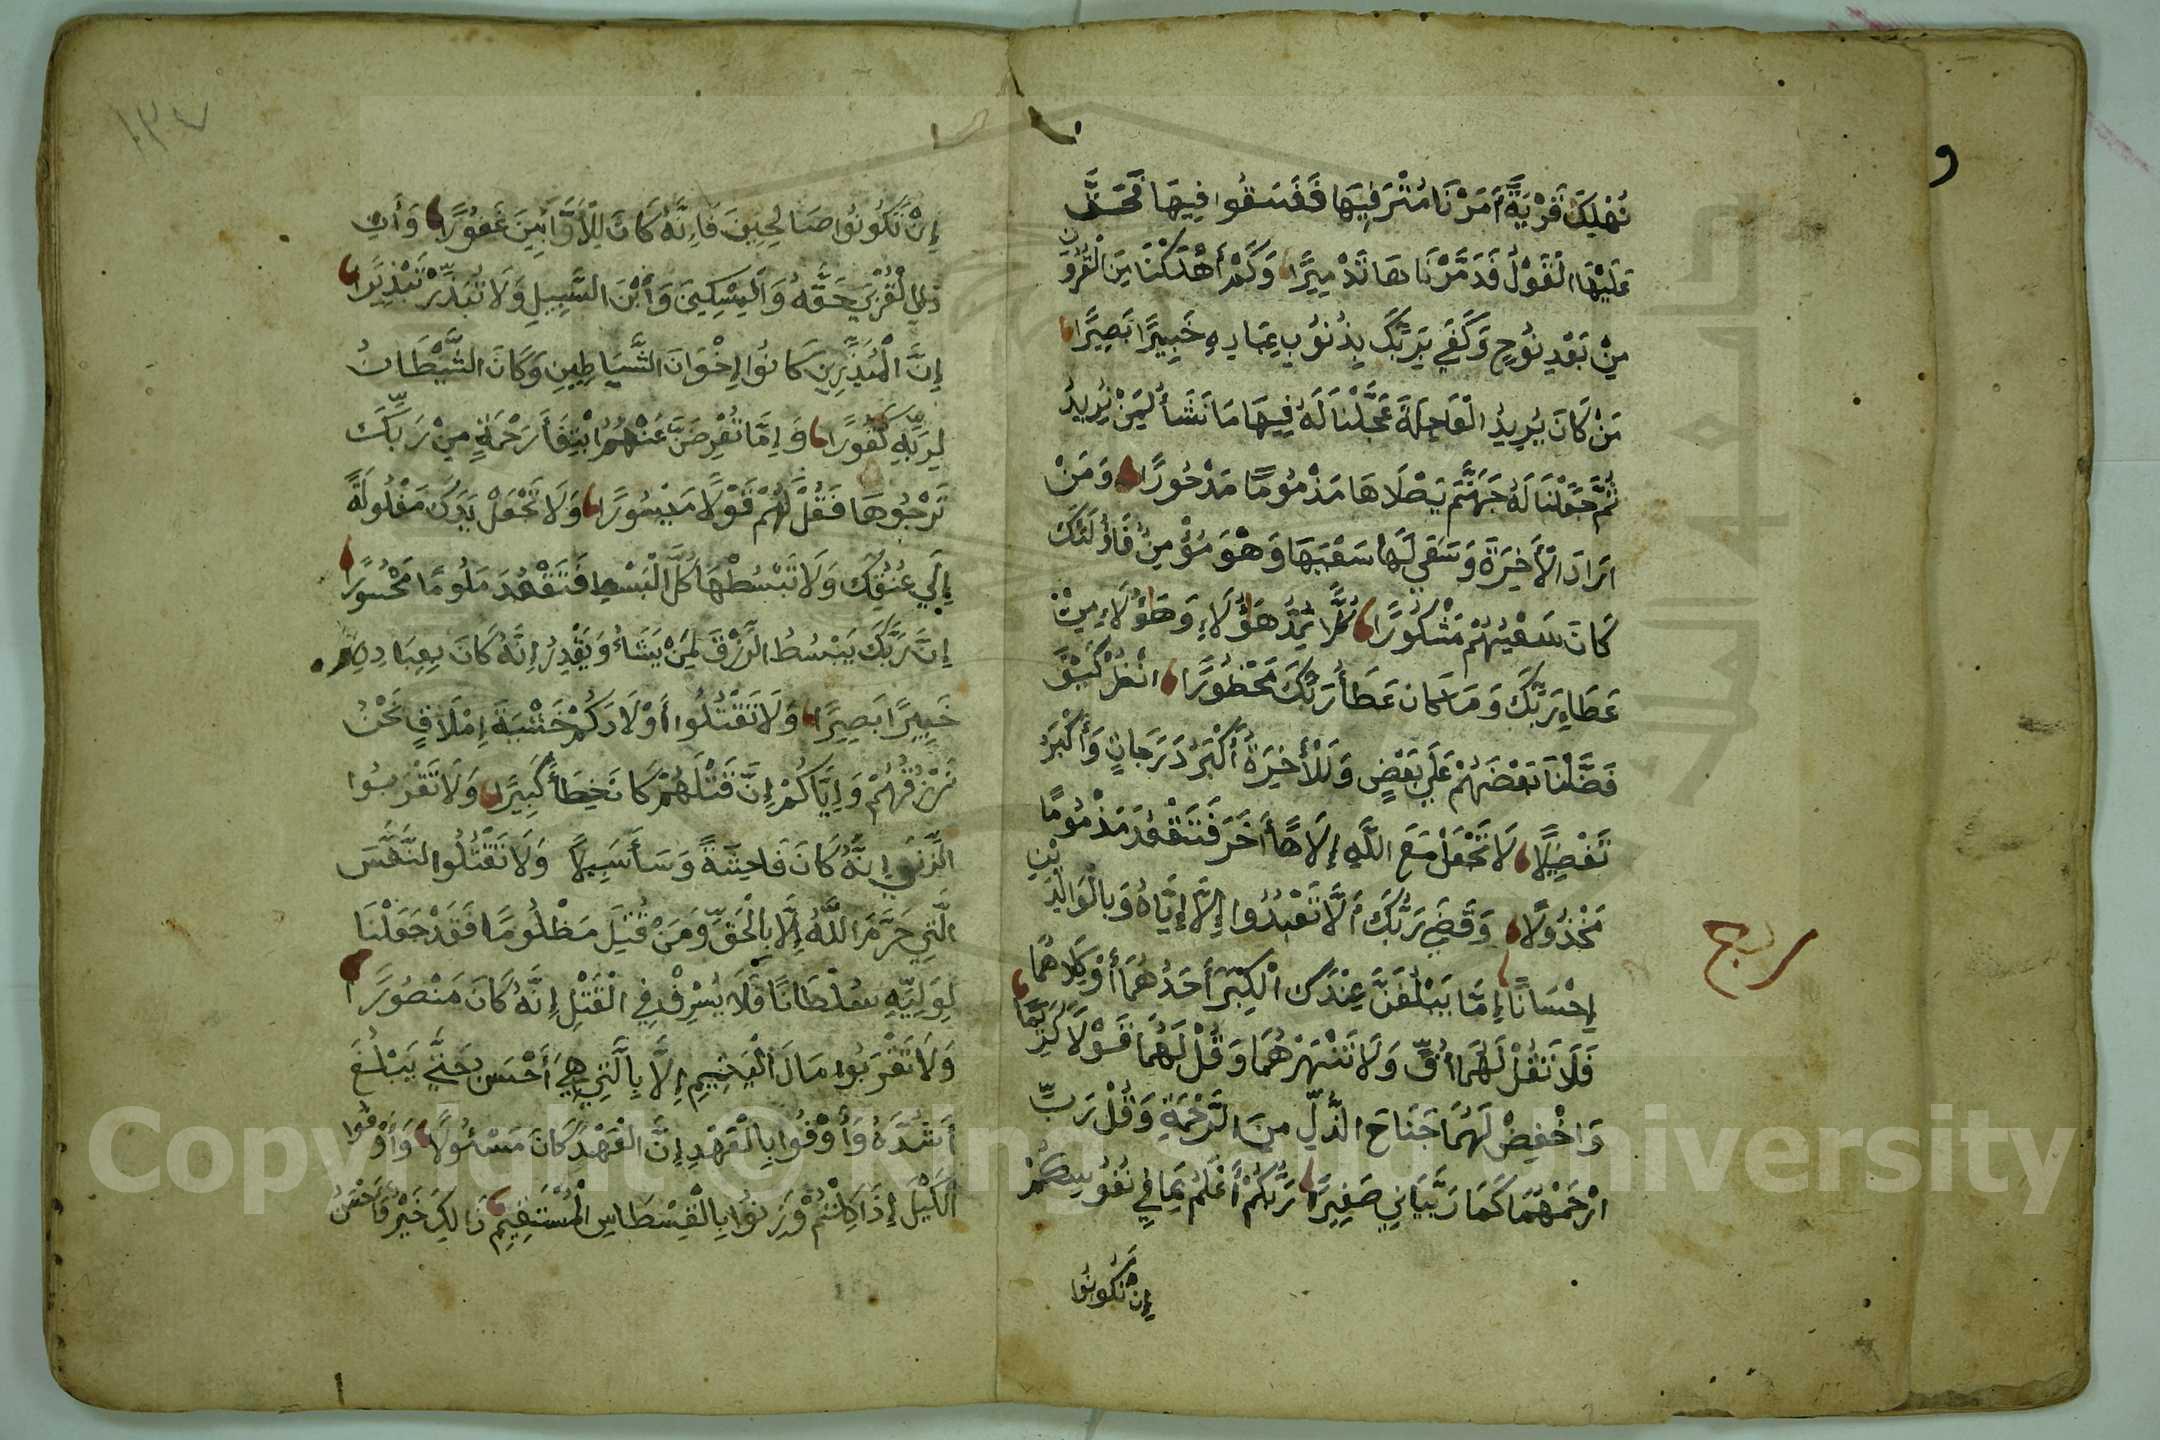 نُهْلِكَ قَرْيَةً أَمَرْنَا مُتْرَفِيهَا فَفَسَقُوا فِيهَا فَحَقَّ
عَلَيْهَا الْقَوْلُ فَدَمَّرْنَاهَا تَدْمِيرًا وَكَمْ أَهْلَكْنَا مِنَ الْقُرُونِ
مِنْ بَعْدِ نُوحٍ وَكَفَى بِرَبِّكَ بِذُنُوبِ عِبَادِهِ خَبِيرًا بَصِيرًا
مَنْ كَانَ يُرِيدُ الْعَاجِلَةَ عَجَّلْنَا لَهُ فِيهَا مَا نَشَأُ لِمَنْ نُرِيدُ
ثُمَّ جَعَلْنَا لَهُ جَهَنَّمَ يَصْلَاهَا مَذْمُومًا مَدْحُورًا وَمَنْ
اَرَادَ الْأَخِرَةَ وَسَعَى لَهَا سَعْيَهَا وَهُوَ مُؤْمِنٌ فَأُولَئِكَ
كَانَ سَعْيُهُمْ مَشْكُورًا كُلًّا نُمِدُّ هَؤُلَاءِ وَهَؤُلَاءِ مِنْ
عَطَاءِ رَبِّكَ وَمَا كَانَ عَطَأُ رَبِّكَ مَحْظُورًا انْظُرْ كَيْفَ
فَضَّلْنَا بَعْضَهُمْ عَلَى بَعْضٍ وَلَلْأَخِرَةُ أَكْبَرُ دَرَجَاتٍ وَأَكْبَرُ
تَفْضِيلًا لَا تَجْعَلْ مَعَ اللَّهِ إِلَاهًا أَخَرَ فَتَقْعُدَ مَذْمُومًا
مَخْذُولًا وَقَضَى رَبُّكَ أَلَّا تَعْبُدُوا إِلَّا إِيَّاهُ وَبِالْوَالِدَيْنِ
إِحْسَانًا إِمَّا يَبْلُغَنَّ عِنْدَكَ الْكِبَرَ أَحَدُهُمَا أَوْ كِلَاهُمَا
فَلَا تَقُلْ لَهُمَا أُفٍّ وَلَا تَنْهَرْهُمَا وَقُلْ لَهُمَا قَوْلًا كَرِيمًا
وَاخْفِضْ لَهُمَا جَنَاحَ الذُّلِّ مِنَ الرَّحْمَةِ وَقُلْ رَبِّ
ارْحَمْهُمَا كَمَا رَبَّيَانِي صَغِيرًا رَبُّكُمْ أَعْلَمُ بِمَا فِي نُفُوسِكُمْ
إِنْ تَكُونُوا
ربع
١٣٧
إِنْ تَكُونُوا صَالِحِينَ فَإِنَّهُ كَانَ لِلْأَوَّابِينَ غَفُورًا وَأَتِ
ذَا الْقُرْبَى حَقَّهُ وَالْمِسْكِينَ وَابْنَ السَّبِيلِ وَلَا تُبَذِّرْ تَبْذِيرًا
إِنَّ الْمُبَذِّرِينَ كَانُوا إِخْوَانَ الشَّيَاطِينِ وَكَانَ الشَّيْطَانُ
لِرَبِّهِ كَفُورًا وَإِمَّا تُعْرِضَنَّ عَنْهُمُ ابْتِغَأَ رَحْمَةٍ مِنْ رَبِّكَ
تَرْجُوهَا فَقُلْ لَهُمْ قَوْلًا مَيْسُورًا وَلَا تَجْعَلْ يَدَكَ مَغْلُولَةً
إِلَى عُنُقِكَ وَلَا تَبْسُطْهَا كُلَّ الْبَسْطِ فَتَقْعُدَ مَلُومًا مَحْسُورًا
إِنَّ رَبَّكَ يَبْسُطُ الرِّزْقَ لِمَنْ يَشَاءُ وَيَقْدِرُ إِنَّهُ كَانَ بِعِبَادِهِ
خَبِيرًا بَصِيرًا وَلَا تَقْتُلُوا أَوْلَادَكُمْ خَشْيَةَ إِمْلَاقٍ نَحْنُ
نَرْزُقُهُمْ وَإِيَّاكُمْ إِنَّ قَتْلَهُمْ كَانَ خِطَأً كَبِيرًا وَلَا تَقْرَبُوا
الزِّنَى إِنَّهُ كَانَ فَاحِشَةً وَسَأَ سَبِيلًا وَلَا تَقْتُلُوا النَّفْسَ
الَّتِي حَرَّمَ اللَّهُ إِلَّا بِالْحَقِّ وَمَنْ قُتِلَ مَظْلُومًا فَقَدْ جَعَلْنَا
لِوَلِيِّهِ سُلْطَانًا فَلَا يُسْرِفْ فِي الْقَتْلِ إِنَّهُ كَانَ مَنْصُورًا
وَلَا تَقْرَبُوا مَالَ الْيَتِيمِ إِلَّا بِالَّتِي هِيَ أَحْسَنُ حَتَّى يَبْلُغَ
أَشُدَّهُ وَأَوْفُوا بِالْعَهْدِ إِنَّ الْعَهْدَ كَانَ مَسْئُولًا وَأَوْفُوا
الْكَيْلَ إِذَا كِلْتُمْ وَزِنُوا بِالْقِسْطَاسِ الْمُسْتَقِيمِ ذَالِكَ خَيْرٌ وَأَحْسَنُ
Copyright © King Saud University